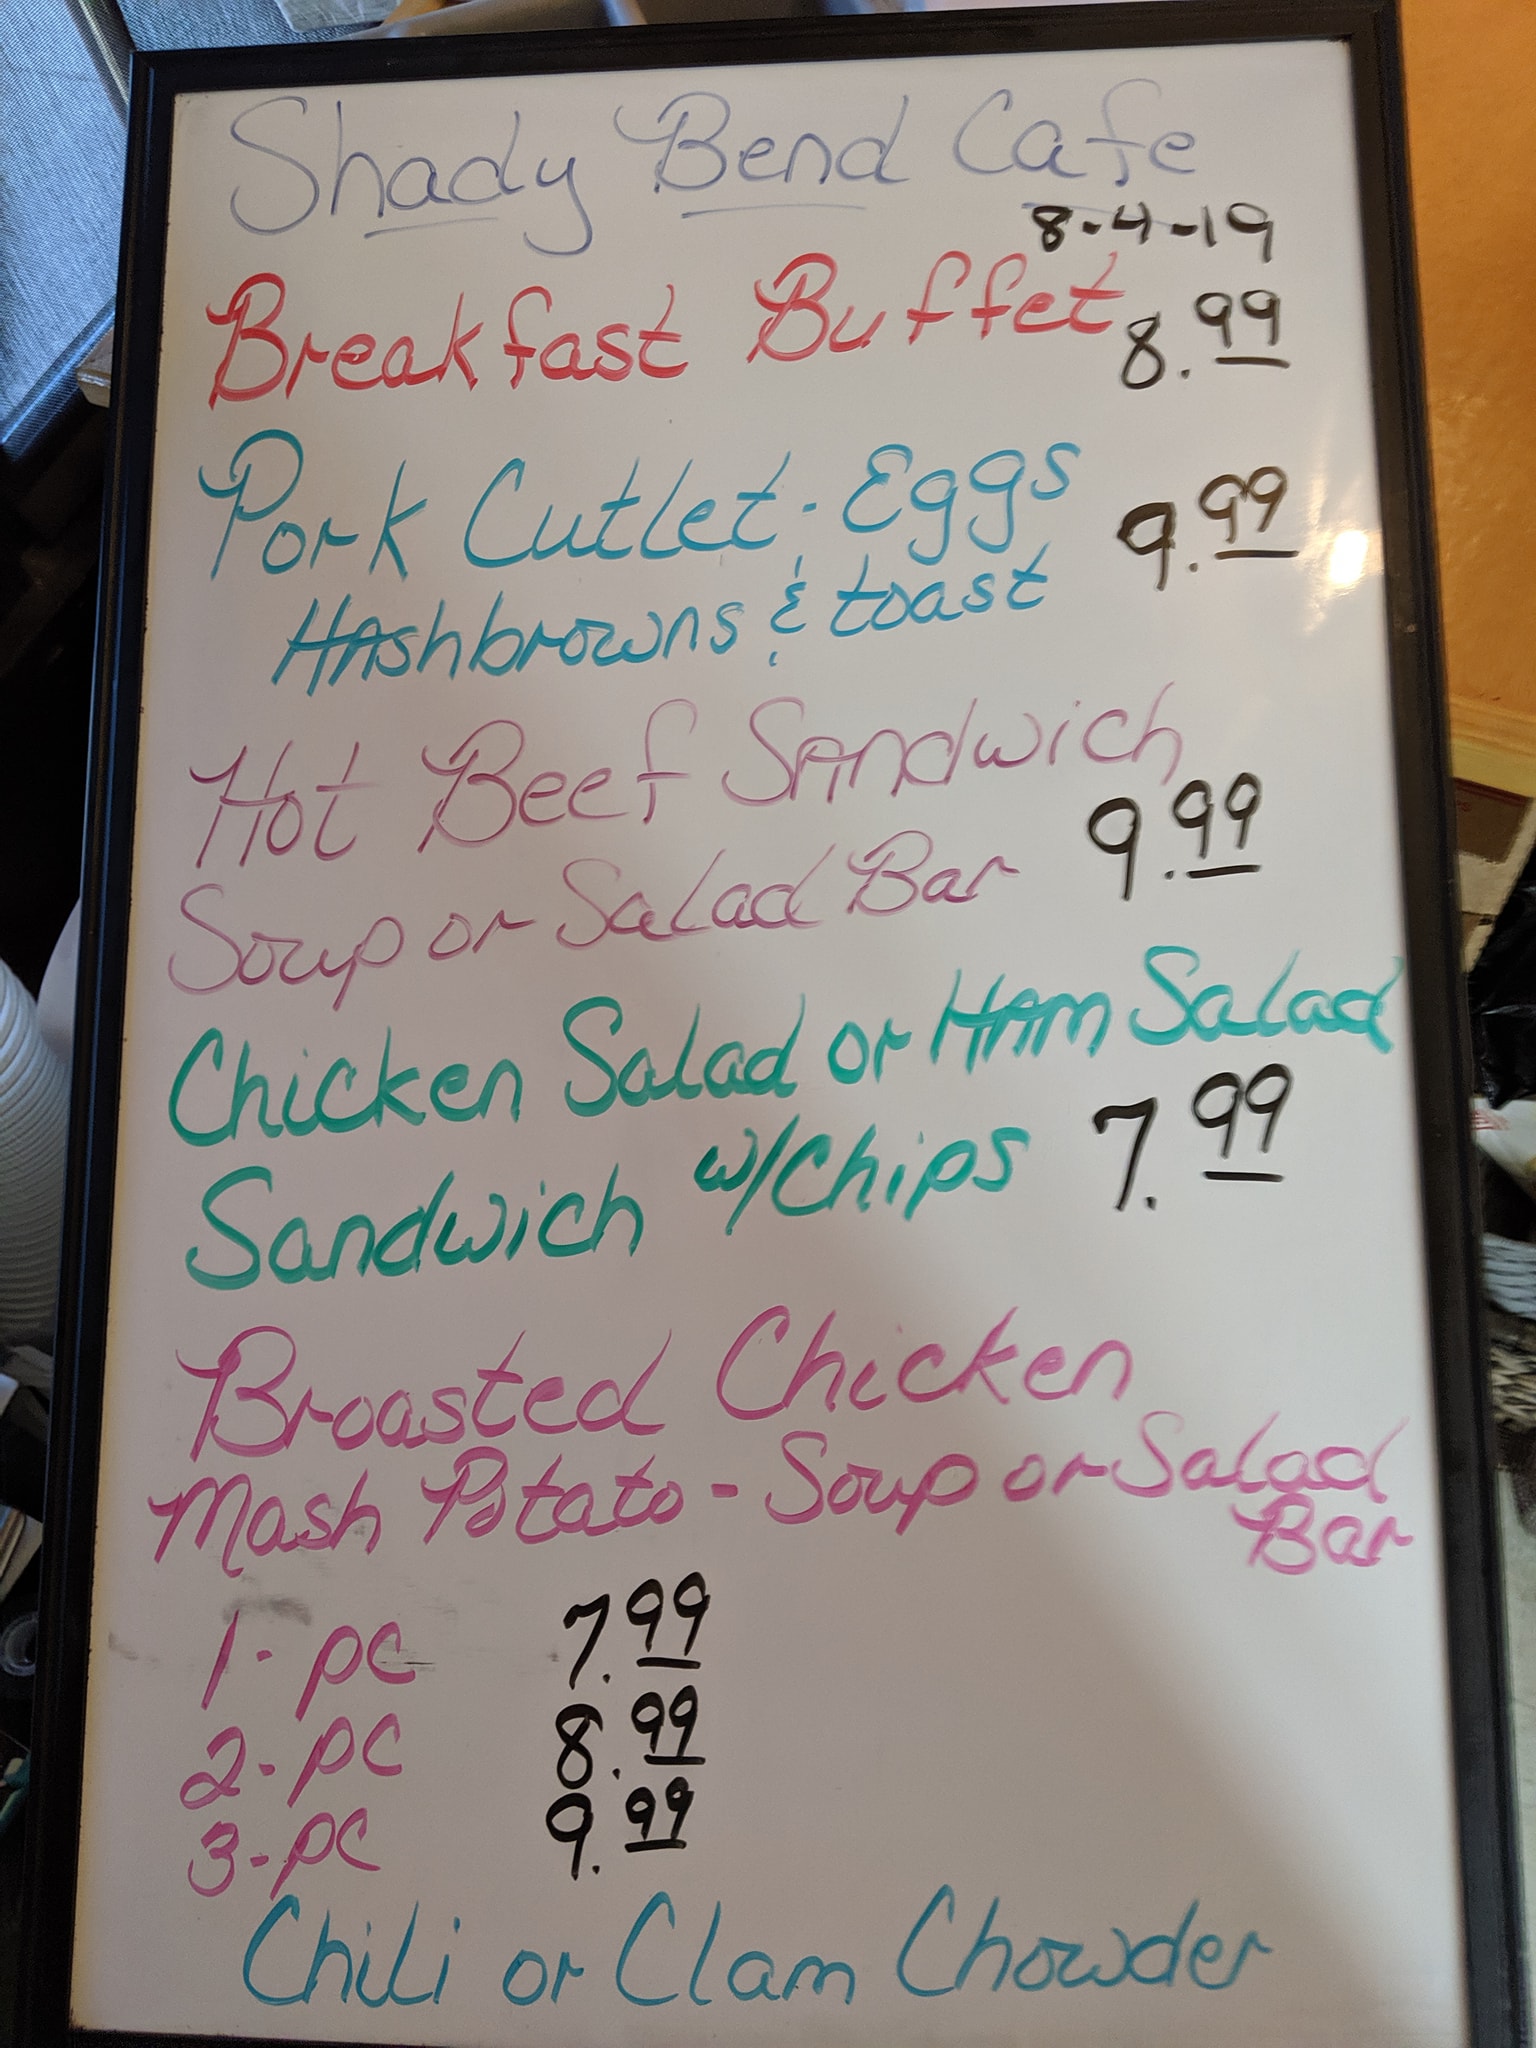 Shady Bend Cafe
8-4-19
Breakfast Buffet 8.99
Pork Cutlet - Eggs 9.99
HAshbrowns & toast
Hot Beef SANdwich
Soup or Salad Bar 9.99
Chicken Salad or HAm Salad
Sandwich w/Chips 7.99
Broasted Chicken
Mash Potato - Soup or Salad
Bar
1-pc 7.99
2-pc 8.99
3-pc 9.99
Chili or Clam Chowder